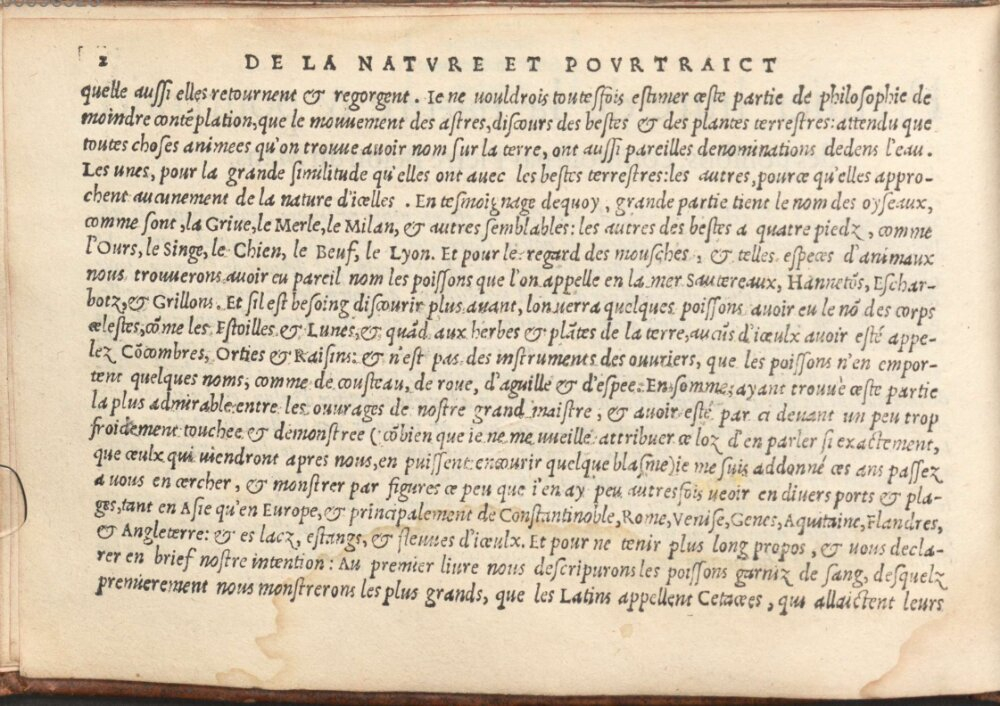 2 DE LA NATVRE ET POVRTRAICT
quelle aussi elles retournent & regorgent. Ie ne uouldrois toutesfois estimer ceste partie de philosophie de
moindre contẽplation, que le mouuement des astres, discours des bestes & des plantes terrestres: attendu que
toutes choses animees qu'on trouue auoir nom sur la terre, ont aussi pareilles denominations dedens l'eau.
Les unes, pour la grande similitude qu'elles ont auec les bestes terrestres: les autres, pource qu'elles appro-
chent aucunement de la nature d'icelles. En tesmoignage dequoy, grande partie tient le nom des oyseaux,
comme sont, la Griue, le Merle, le Milan, & autres semblables: les autres des bestes a quatre piedz, comme
l'Ours, le Singe, le Chien, le Beuf, le Lyon. Et pour le regard des mousches, & telles especes d'animaux
nous trouuerons auoir eu pareil nom les poissons que l'on appelle en la mer Sautereaux, Hannetõs, Eschar-
botz, & Grillons. Et s'il est besoing discourir plus auant, lon uerra quelques poissons auoir eu le nõ des corps
celestes, cõme les Estoilles & Lunes, & quãd aux herbes & plãtes de la terre, aucũs d'iceulx auoir esté appe-
lez Cõcombres, Orties & Raisins: & n'est pas des instruments des ouuriers, que les poissons n'en empor-
tent quelques noms, comme de cousteau, de roue, d'aguille & d'espee. En somme, ayant trouué ceste partie
la plus admirable entre les ouurages de nostre grand maistre, & auoir esté par ci deuant un peu trop
froidement touchee & demonstree (cõbien que ie ne me uueille attribuer ce loz d'en parler si exactement,
que ceulx qui uiendront apres nous, en puissent encourir quelque blasme) ie me suis addonné ces ans passez
a uous en cercher, & monstrer par figures ce peu que i'en ay peu autresfois ueoir en diuers ports & pla-
ges, tant en Asie qu'en Europe, & principalement de Constantinoble, Rome, Venise, Genes, Aquitaine, Flandres,
& Angleterre: & es lacz, estangs, & fleuues d'iceulx. Et pour ne tenir plus long propos, & uous decla-
rer en brief nostre intention: Au premier liure nous descripurons les poissons garniz de sang, desquelz
premierement nous monstrerons les plus grands, que les Latins appellent Cetacees, qui allaictent leurs